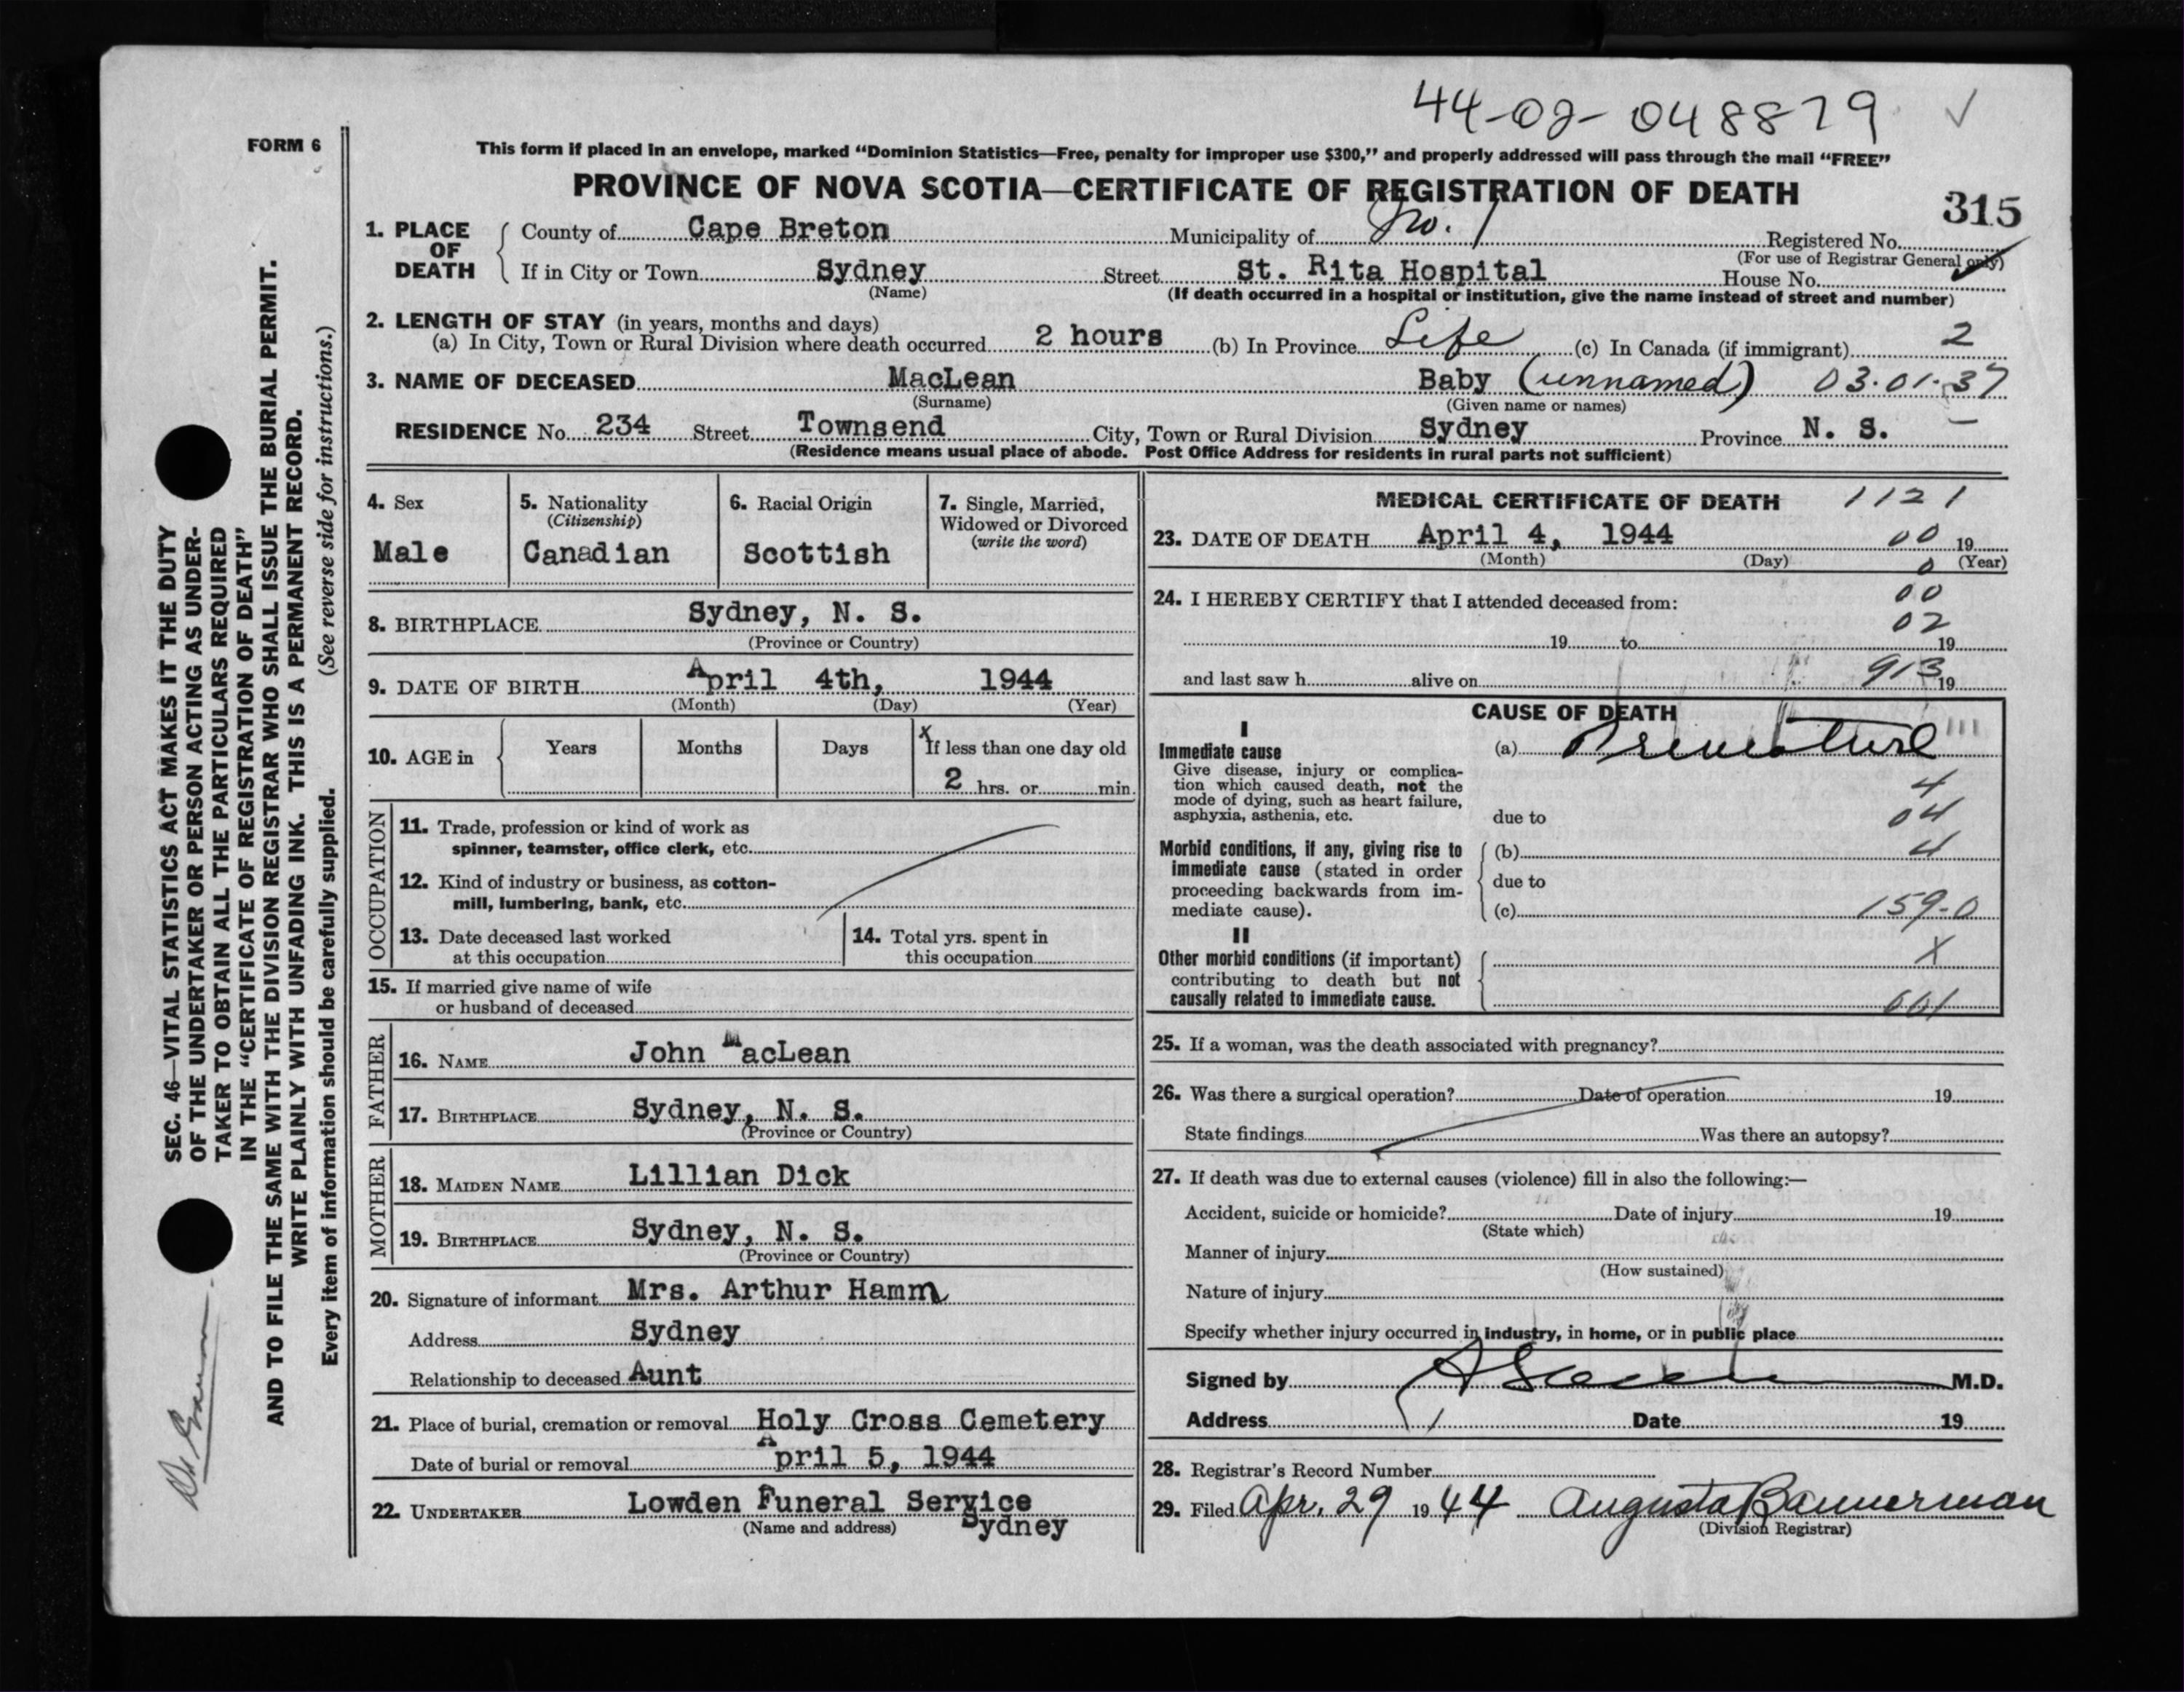 44-02-048879 ✓
FORM 6
This form if placed in an envelope, marked “Dominion Statistics—Free, penalty for improper use $300,” and properly addressed will pass through the mail “FREE”
PROVINCE OF NOVA SCOTIA—CERTIFICATE OF REGISTRATION OF DEATH
315
1. PLACE OF DEATH
County of Cape Breton Municipality of No. 1 Registered No.
(For use of Registrar General only)
If in City or Town Sydney Street St. Rita Hospital House No.
(Name) (If death occurred in a hospital or institution, give the name instead of street and number)
2. LENGTH OF STAY (in years, months and days)
(a) In City, Town or Rural Division where death occurred 2 hours (b) In Province Life (c) In Canada (if immigrant) 2
3. NAME OF DECEASED MacLean Baby (unnamed) 03.01.37
(Surname) (Given name or names)
RESIDENCE No. 234 Street Townsend City, Town or Rural Division Sydney Province N. S. —
(Residence means usual place of abode. Post Office Address for residents in rural parts not sufficient)
4. Sex
Male
5. Nationality
(Citizenship)
Canadian
6. Racial Origin
Scottish
7. Single, Married, Widowed or Divorced
(write the word)
8. BIRTHPLACE Sydney, N. S.
(Province or Country)
9. DATE OF BIRTH April 4th, 1944
(Month) (Day) (Year)
10. AGE in Years Months Days x If less than one day old
2 hrs. or min.
OCCUPATION
11. Trade, profession or kind of work as
spinner, teamster, office clerk, etc.
12. Kind of industry or business, as cotton-
mill, lumbering, bank, etc.
13. Date deceased last worked
at this occupation
14. Total yrs. spent in
this occupation
15. If married give name of wife
or husband of deceased
FATHER
16. NAME John MacLean
17. BIRTHPLACE Sydney, N. S.
(Province or Country)
MOTHER
18. MAIDEN NAME Lillian Dick
19. BIRTHPLACE Sydney, N. S.
(Province or Country)
20. Signature of informant Mrs. Arthur Hamm
Address Sydney
Relationship to deceased Aunt
21. Place of burial, cremation or removal Holy Cross Cemetery
Date of burial or removal April 5, 1944
22. UNDERTAKER Lowden Funeral Service
(Name and address) Sydney
MEDICAL CERTIFICATE OF DEATH 1121
23. DATE OF DEATH April 4, 1944 00 19
(Month) (Day) 0 (Year)
24. I HEREBY CERTIFY that I attended deceased from: 00
02
19 to 19
and last saw h alive on 913 19
CAUSE OF DEATH
I
Immediate cause (a) Premature 111
Give disease, injury or complica-
tion which caused death, not the
mode of dying, such as heart failure,
asphyxia, asthenia, etc.
4
due to 04
Morbid conditions, if any, giving rise to
immediate cause (stated in order
proceeding backwards from im-
mediate cause).
(b) 4
due to
(c) 159-0
II
Other morbid conditions (if important)
contributing to death but not
causally related to immediate cause.
X
001
25. If a woman, was the death associated with pregnancy?
26. Was there a surgical operation? Date of operation 19
State findings Was there an autopsy?
27. If death was due to external causes (violence) fill in also the following:—
Accident, suicide or homicide? Date of injury 19
(State which)
Manner of injury
(How sustained)
Nature of injury
Specify whether injury occurred in industry, in home, or in public place
Signed by M.D.
Address Date 19
28. Registrar's Record Number
29. Filed Apr. 29 1944 Augusta Bannerman
(Division Registrar)
SEC. 46—VITAL STATISTICS ACT MAKES IT THE DUTY
OF THE UNDERTAKER OR PERSON ACTING AS UNDER-
TAKER TO OBTAIN ALL THE PARTICULARS REQUIRED
IN THE “CERTIFICATE OF REGISTRATION OF DEATH”
AND TO FILE THE SAME WITH THE DIVISION REGISTRAR WHO SHALL ISSUE THE BURIAL PERMIT.
WRITE PLAINLY WITH UNFADING INK. THIS IS A PERMANENT RECORD.
Every item of information should be carefully supplied. (See reverse side for instructions.)